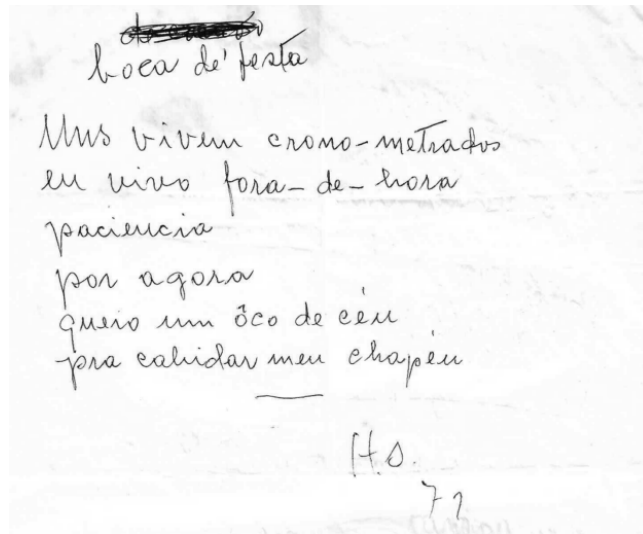 boca de' festa
Uns vivem crono-metrados
eu vivo fora-de-hora
paciencia
por agora
queio um ôco de céu
pra cabidar meu chapéu
H.S.
72